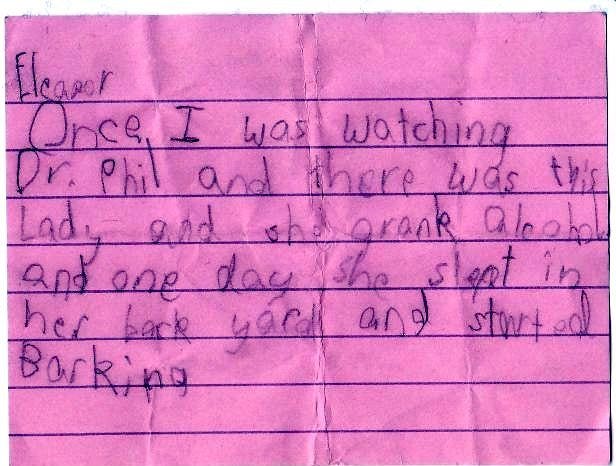 Eleanor
Once, I was watching
Dr. Phil and there was this
Lady and she drank alcohol
and one day she slept in
her back yard and started
Barking